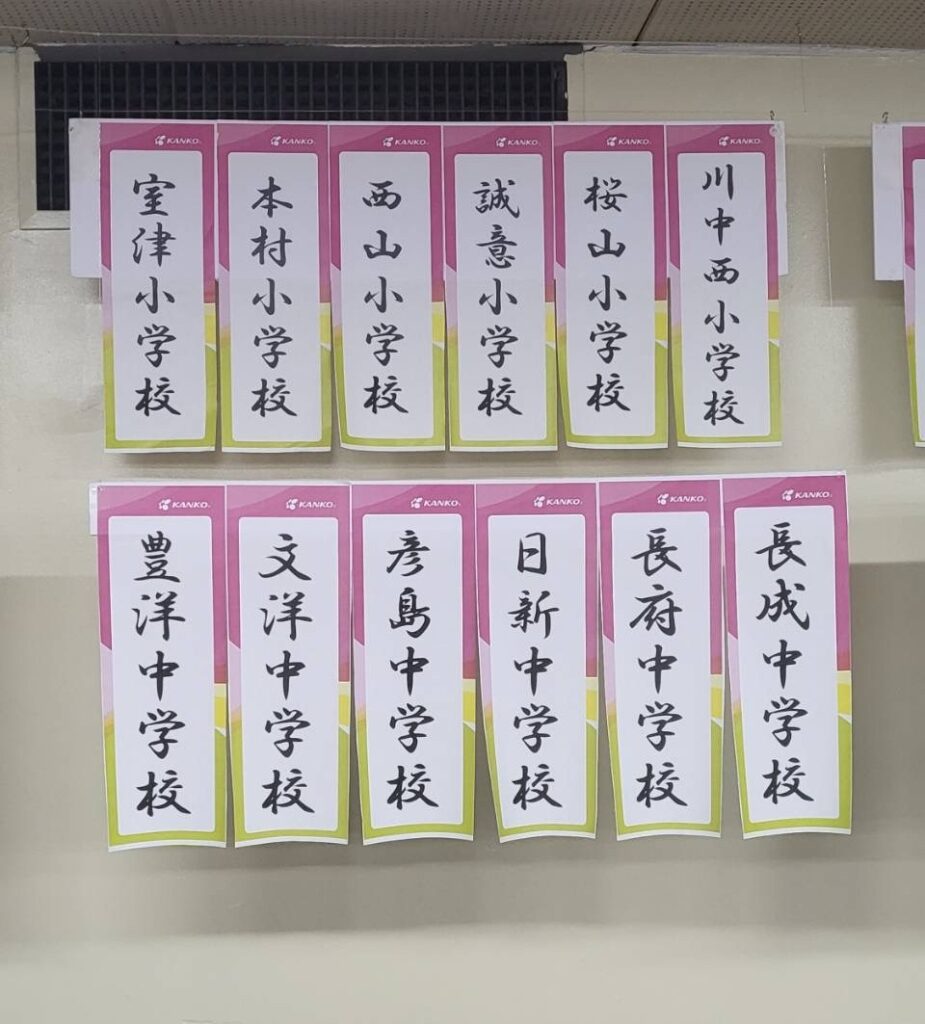 KANKO
室津小学校
KANKO
本村小学校
KANKO
西山小学校
KANKO
誠意小学校
KANKO
桜山小学校
KANKO
川中西小学校
KANKO
豊洋中学校
KANKO
文洋中学校
KANKO
彦島中学校
KANKO
日新中学校
KANKO
長府中学校
KANKO
長成中学校